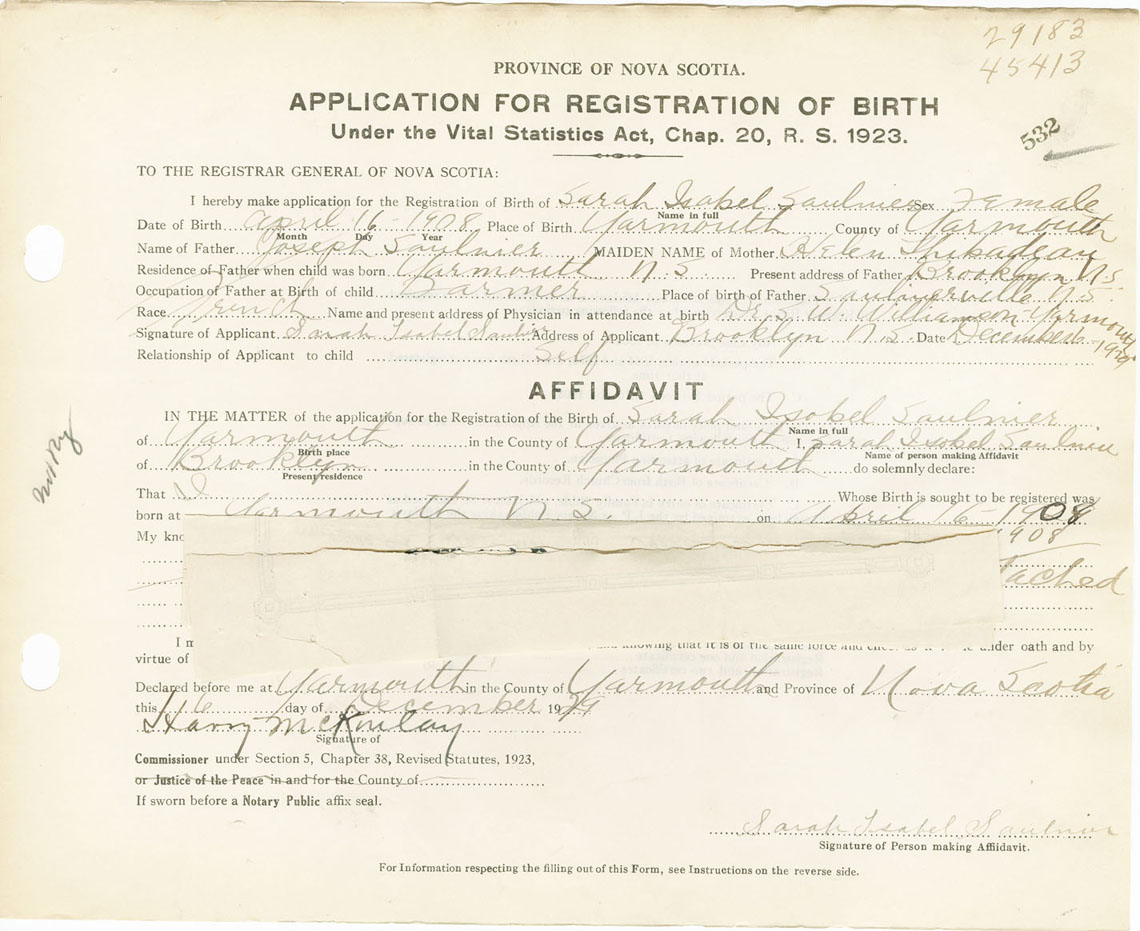 29183
45413
532
PROVINCE OF NOVA SCOTIA.
APPLICATION FOR REGISTRATION OF BIRTH
Under the Vital Statistics Act, Chap. 20, R. S. 1923.
TO THE REGISTRAR GENERAL OF NOVA SCOTIA:
I hereby make application for the Registration of Birth of Sarah Isobel Saulnier Sex Female
Name in full
Date of Birth April 16 - 1908 Place of Birth Yarmouth County of Yarmouth
Month Day Year
Name of Father Joseph Saulnier MAIDEN NAME of Mother Helen Thibadeau
Residence of Father when child was born Yarmouth N.S. Present address of Father Brooklyn N.S.
Occupation of Father at Birth of child Farmer Place of birth of Father Saulnierville N.S.
Race French Name and present address of Physician in attendance at birth Dr. S. W. Williamson Yarmouth
Signature of Applicant Sarah Isabel Saulnier Address of Applicant Brooklyn N.S. Date December 16 - 1929
Relationship of Applicant to child Self
AFFIDAVIT
IN THE MATTER of the application for the Registration of the Birth of Sarah Isobel Saulnier
Name in full
of Yarmouth in the County of Yarmouth I, Sarah Isobel Saulnier
Birth place Name of person making Affidavit
of Brooklyn in the County of Yarmouth do solemnly declare:
Present residence
That I Whose Birth is sought to be registered was
born at Yarmouth N.S. on April 16 - 1908
1908
My kno
tached
I m and knowing that it is of the same force and under oath and by
virtue of
Declared before me at Yarmouth in the County of Yarmouth and Province of Nova Scotia
this 16 day of December 1929
Harry McKinlay
Signature of
Commissioner under Section 5, Chapter 38, Revised Statutes, 1923,
or Justice of the Peace in and for the County of
If sworn before a Notary Public affix seal.
Sarah Isabel Saulnier
Signature of Person making Affidavit.
For Information respecting the filling out of this Form, see Instructions on the reverse side.